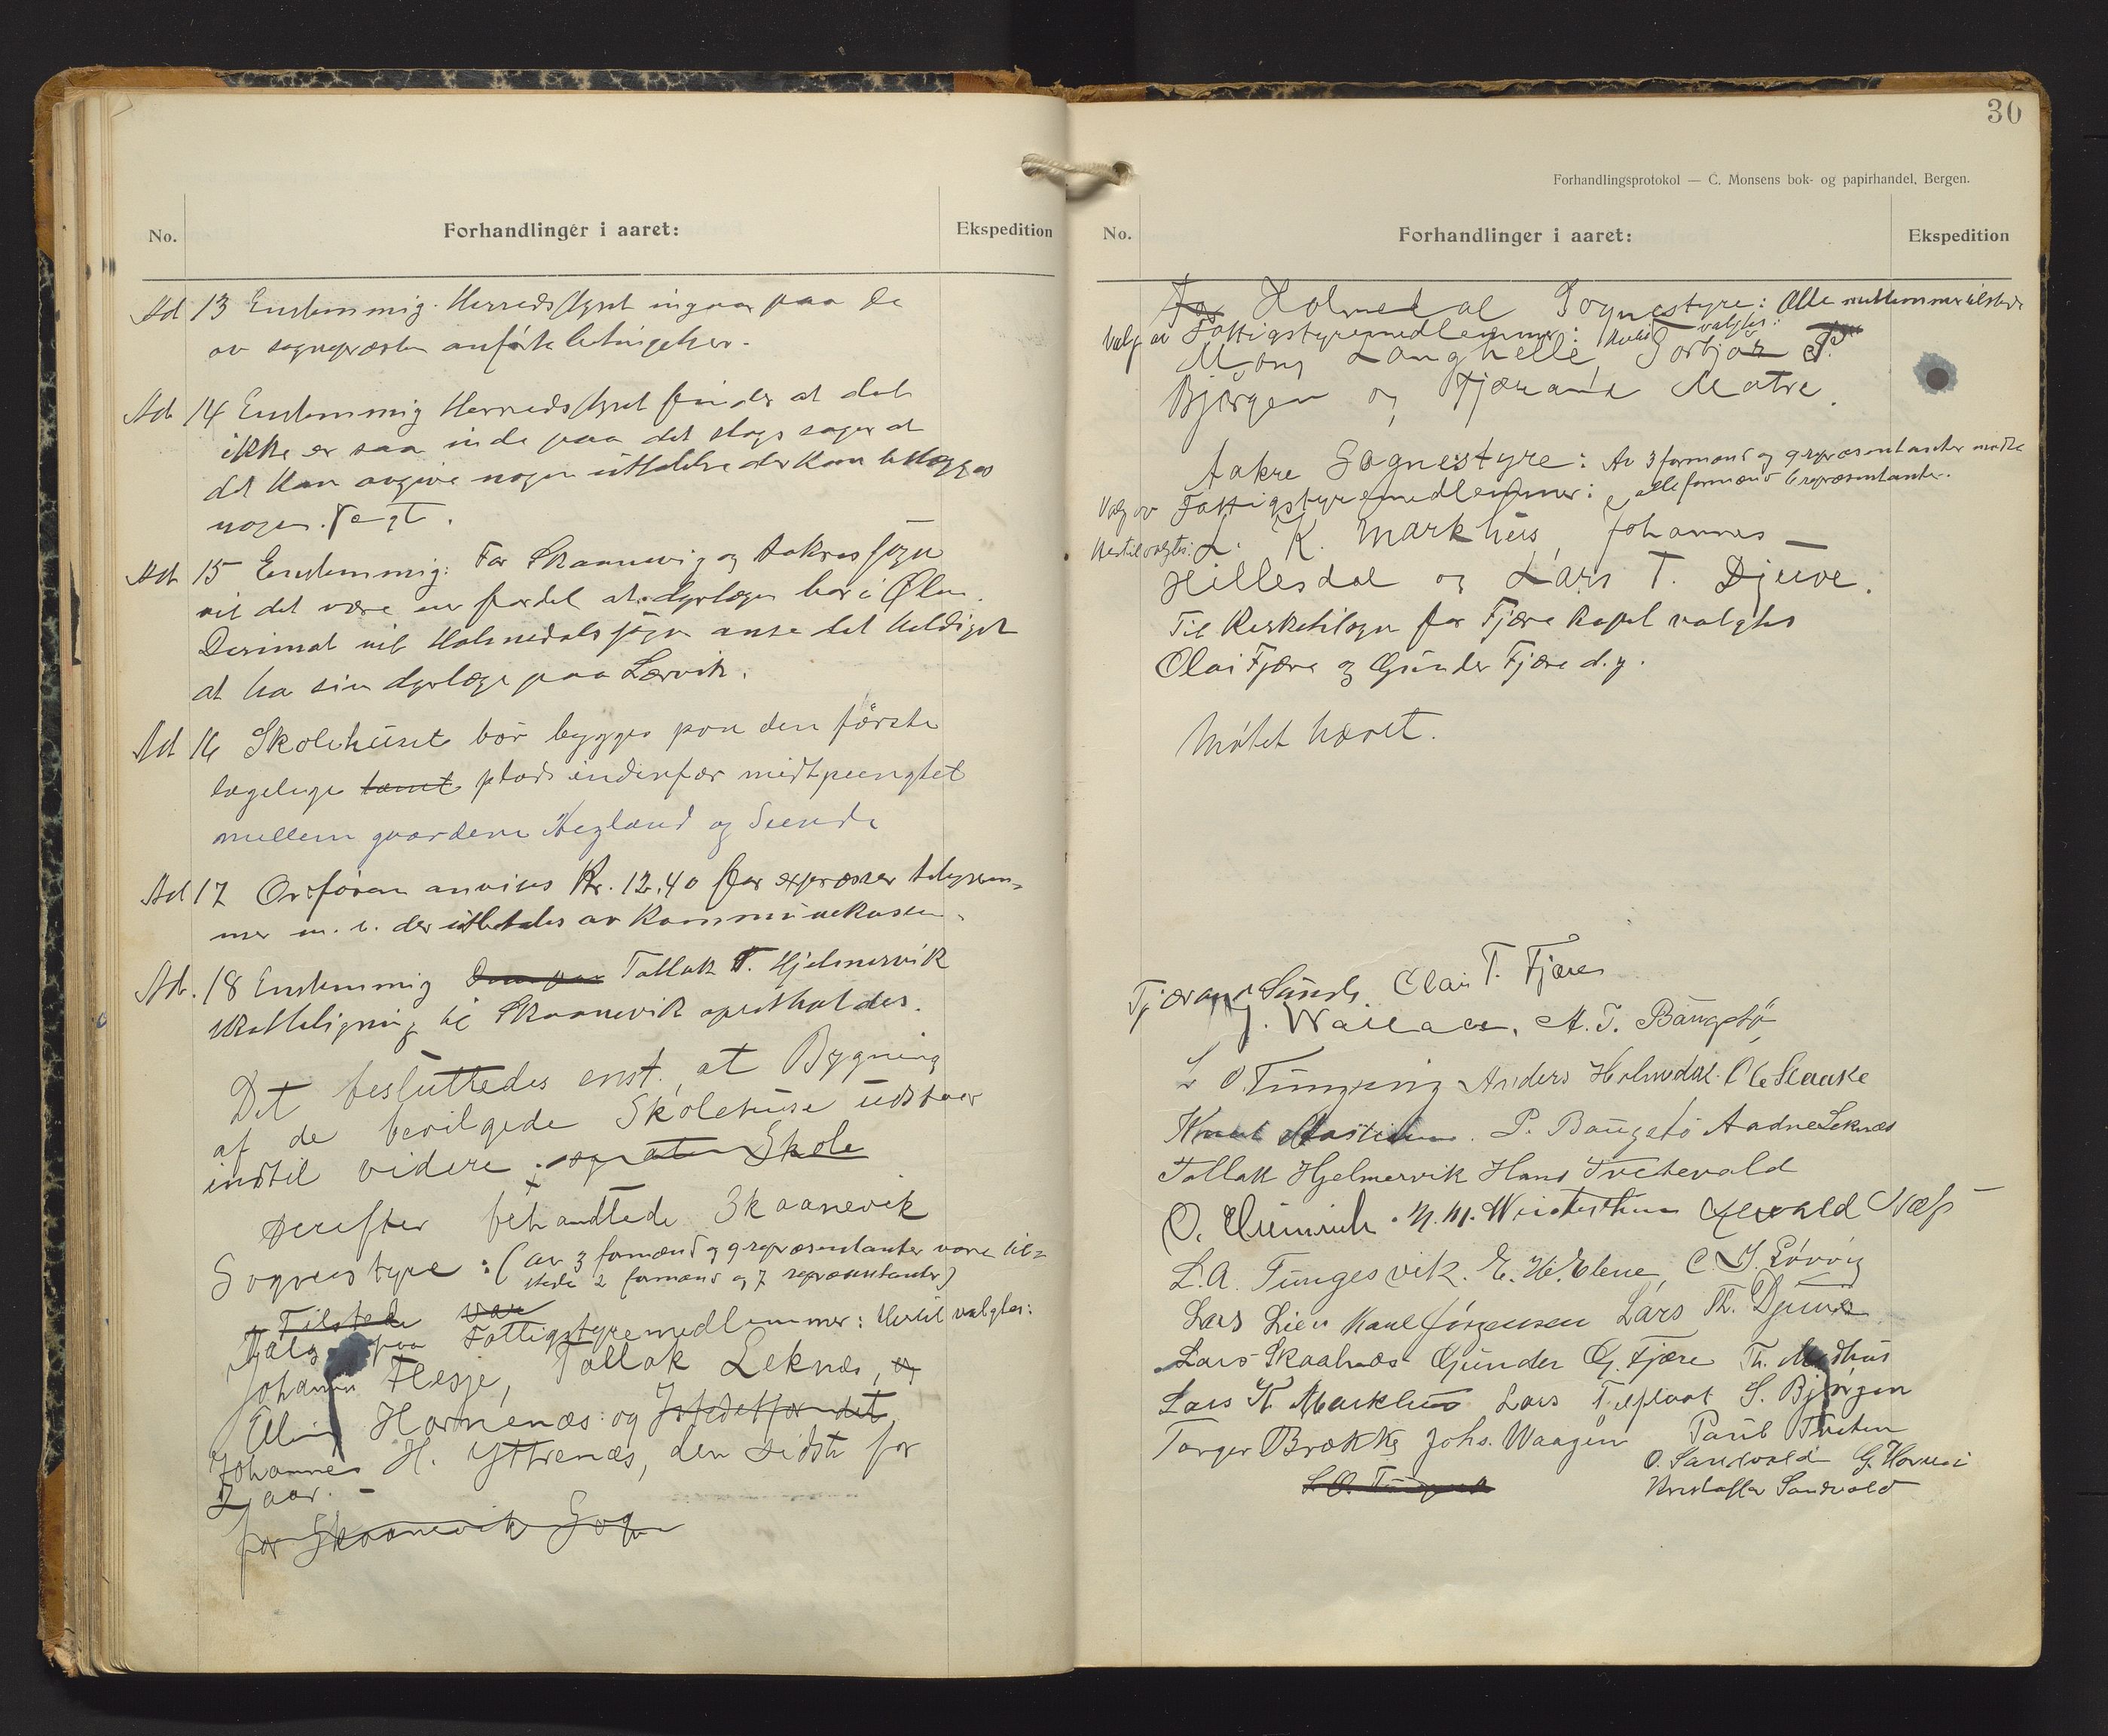 No. Forhandlinger i aaret: Ekspedition
Ad 13 Enstemmig. Herredsstyret ingaar paa de
av sognepræsten anførte betingelser.
Ad 14 Enstemmig Herredsstyret finder at det
ikke er saa inde paa det slags sager at
det kan avgive nogen uttalelse der kan tillægges
nogen vegt.
Ad 15 Enstemmig: For Skaanevig og Aakres sogn
vil det være en fordel at dyrlægen bor i Ølen.
Derimot vil Holmedals sogn anse det heldigst
at ha sin dyrlæge paa Lervik.
Ad 16 Skolehuset bør bygges paa den første
lagelige tomt plads indenfor midtpungtet
mellem gaardene Hegland og Sunde
Ad 17 Ordføren anvises Kr. 12,40 for expresser telegram-
mer m. v. der utbetales av kommunekassen.
Ad. 18 Enstemmig Tollak T. Hjelmervik
skatteligning til Skaanevik oprettholdes.
Det besluttedes enst., at Bygning
af de bevilgede Skolehuse udstaar
indtil videre. Skole
Derefter behandlede Skaanevik
Sognestyre: (av 3 formænd og 9 repræsentanter vare til-
stede 2 formænd og 7 repræsentanter)
Tilstede var
Valg paa Fattigstyremedlemmer: Hertil valgtes:
Johannes Flesje, Tollak Leknes, og
Elling Hornenæs og Istedetfor det
Johannes H. Yttrenæs, den sidste for
2 aar. -
for Skaanevik Sogn
30
Forhandlingsprotokol — C. Monsens bok- og papirhandel, Bergen.
No. Forhandlinger i aaret: Ekspedition
For Holmedal Sognestyre: Alle medlemmer tilstede
Valg av Fattigstyremedlemmer: Hertil valgtes:
Mons Langhelle, Torbjør P.
Bjørgen og Fjærand Matre.
Aakre Sognestyre: Av 3 formænd og 9 repræsentanter mødte
alle formænd 6 repræsentanter.
Valg av Fattigstyremedlemmer:
Hertil valgtes: L. K. Markhus, Johannes
Hillesdal og Lars T. Djuve.
Til Kirketilsyn for Fjære Kapel valgtes
Olai Fjære og Gunder Fjære d.y.
Møtet hævet.
Fjærand Sunde. Olai T. Fjære
J. Wallace, A. T. Baugstø
L O. Tungesvig Anders Holmedal. Ole Skaake
Knut P. Baugstø Aadne Leknes
Tollak Hjelmervik Hans Tvetevald
O. Næss
L. A. Tungesvik. E. H. Elene, C. J. Løvvig
Lars Lien Karl Jørgensen Lars Th. Djuve
Lars Skaalnæs Gunder G. Fjære Th. Medhus
Lars K. Markhus Lars S. Bjørgen
Torger Brække Johs. Waagen Paul Tveten
O. Sandvold G. Hornes
L. O. Tungesvik Kristoffer Sandvold